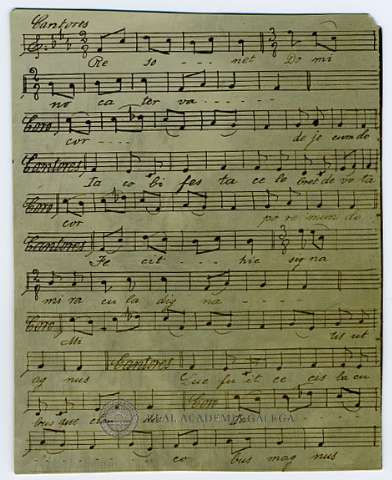 Cantores
Re - so - - - - net Do mi
no ca ter va - - - - -
Coro
cor - - - - de jo cun do
Cantores
Ia co bi fes ta ce le bret de vo ta
Coro
cor po re mun do
Cantores
Fe cit - - hic sig na
mi ra cu la dig na - - - -
Coro
Mi us ut
ag nus Cantores Que fu it ce cis la cu
bus que clau Coro
REAL ACADEMIA GALEGA
co bus mag nus